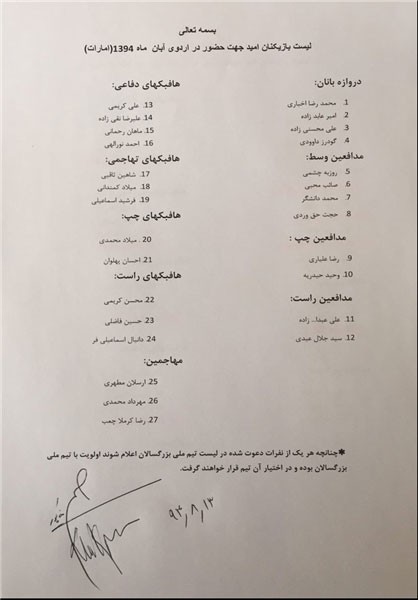 بسمه تعالی
لیست بازیکنان امید جهت حضور در اردوی آبان ماه 1394(امارات)
دروازه بانان:
1. محمد رضا اخباری
2. امیر عابد زاده
3. علی محسنی زاده
4. گودرز داوودی
مدافعین وسط:
5. روزبه چشمی
6. صائب محبی
7. محمد دانشگر
8. حجت حق وردی
مدافعین چپ :
9. رضا علیاری
10. وحید حیدریه
مدافعین راست:
11. علی عبدا.. زاده
12. سید جلال عبدی
هافبکهای دفاعی:
13. علی کریمی
14. علیرضا نقی زاده
15. ماهان رحمانی
16. احمد نورالهی
هافبکهای تهاجمی:
17. شاهین ثاقبی
18. میلاد کمندانی
19. فرشید اسماعیلی
هافبکهای چپ:
20. میلاد محمدی
21. احسان پهلوان
هافبکهای راست:
22. محسن کریمی
23. حسین فاضلی
24. دانیال اسماعیلی فر
مهاجمین:
25. ارسلان مطهری
26. مهرداد محمدی
27. رضا کرملا چعب
✱چنانچه هر یک از نفرات دعوت شده در لیست تیم ملی بزرگسالان اعلام شوند اولویت با تیم ملی
بزرگسالان بوده و در اختیار آن تیم قرار خواهند گرفت.
۹۴,۸,۱۳